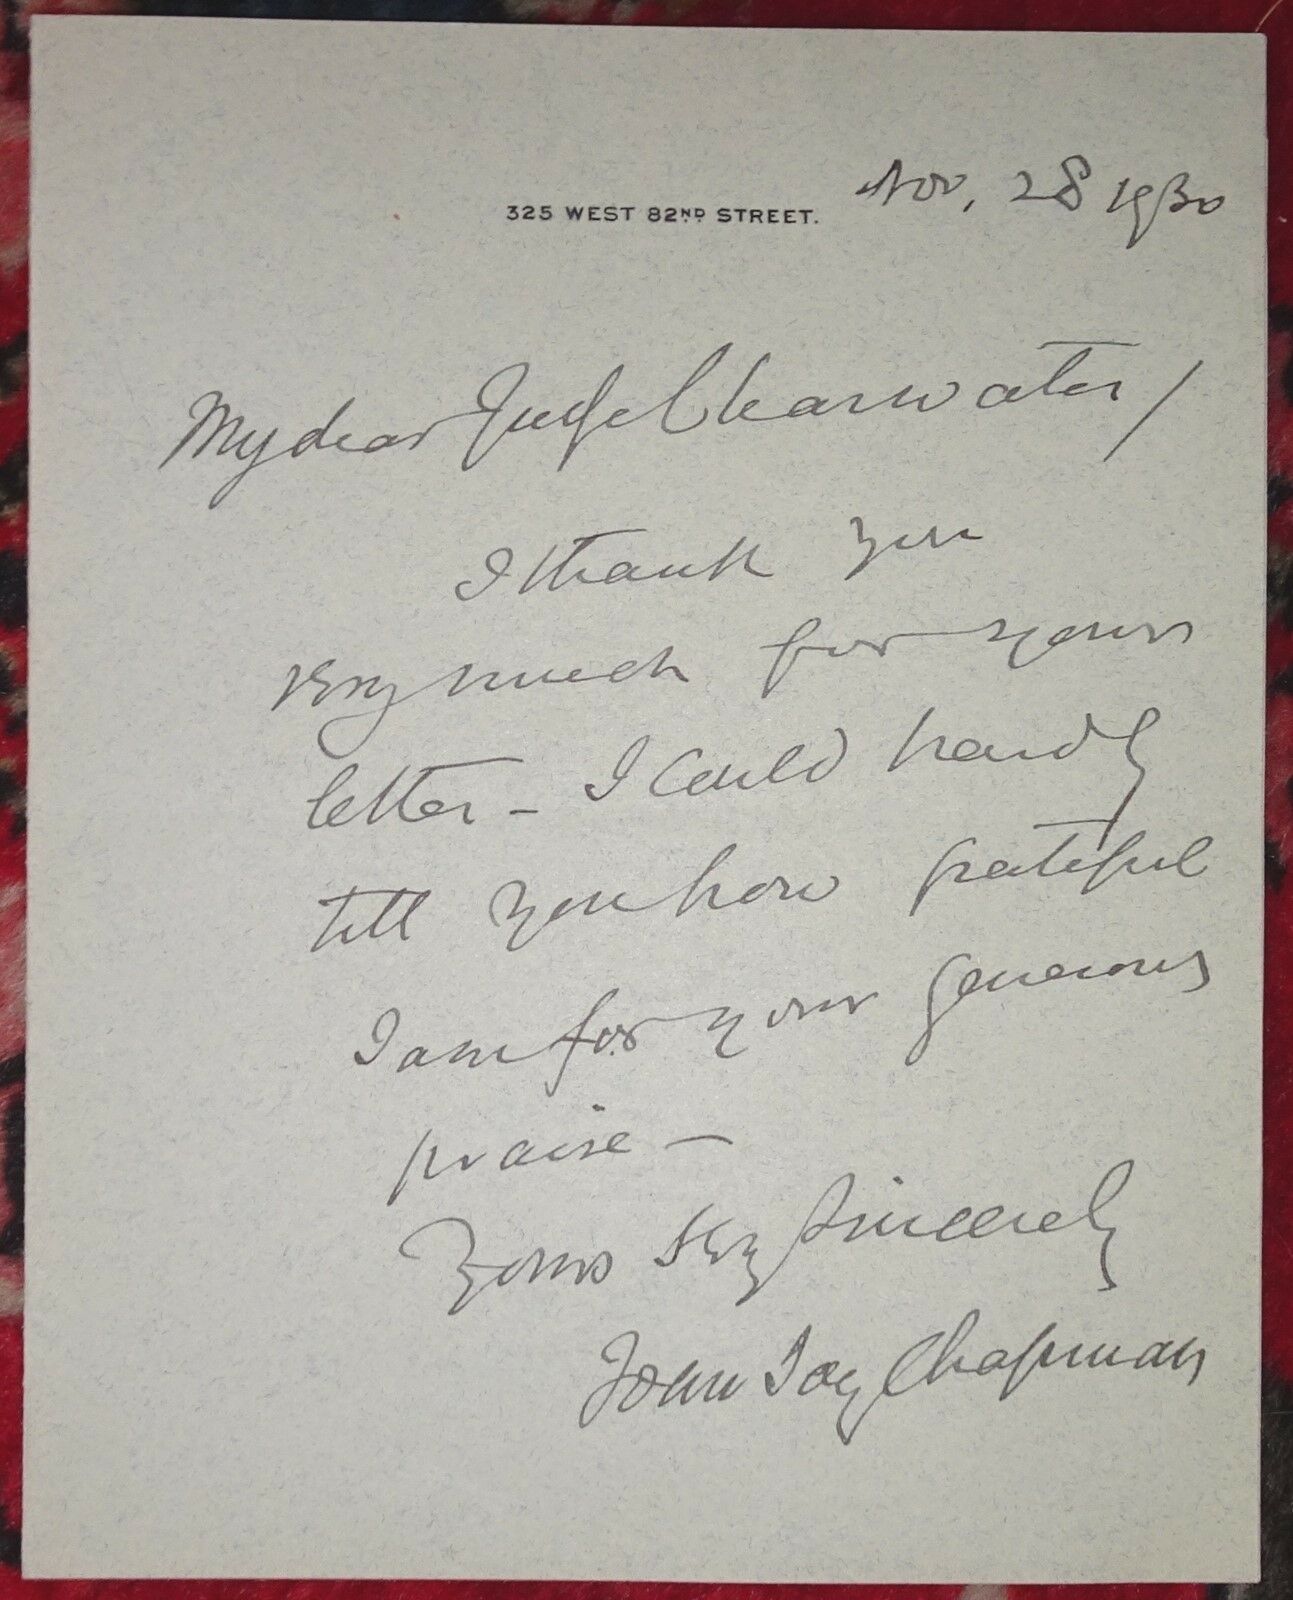 325 WEST 82ND STREET. Nov, 28 1930
My dear Judge Clearwater /
I thank you
very much for your
letter - I could hardly
tell you how grateful
I am for your generous
praise -
Yours very sincerely
John Jay Chapman